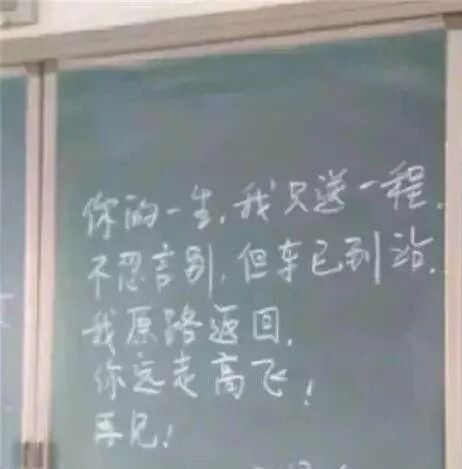 你的一生,我只送一程.
不忍言别,但车已到站.
我原路返回,
你远走高飞!
再见!